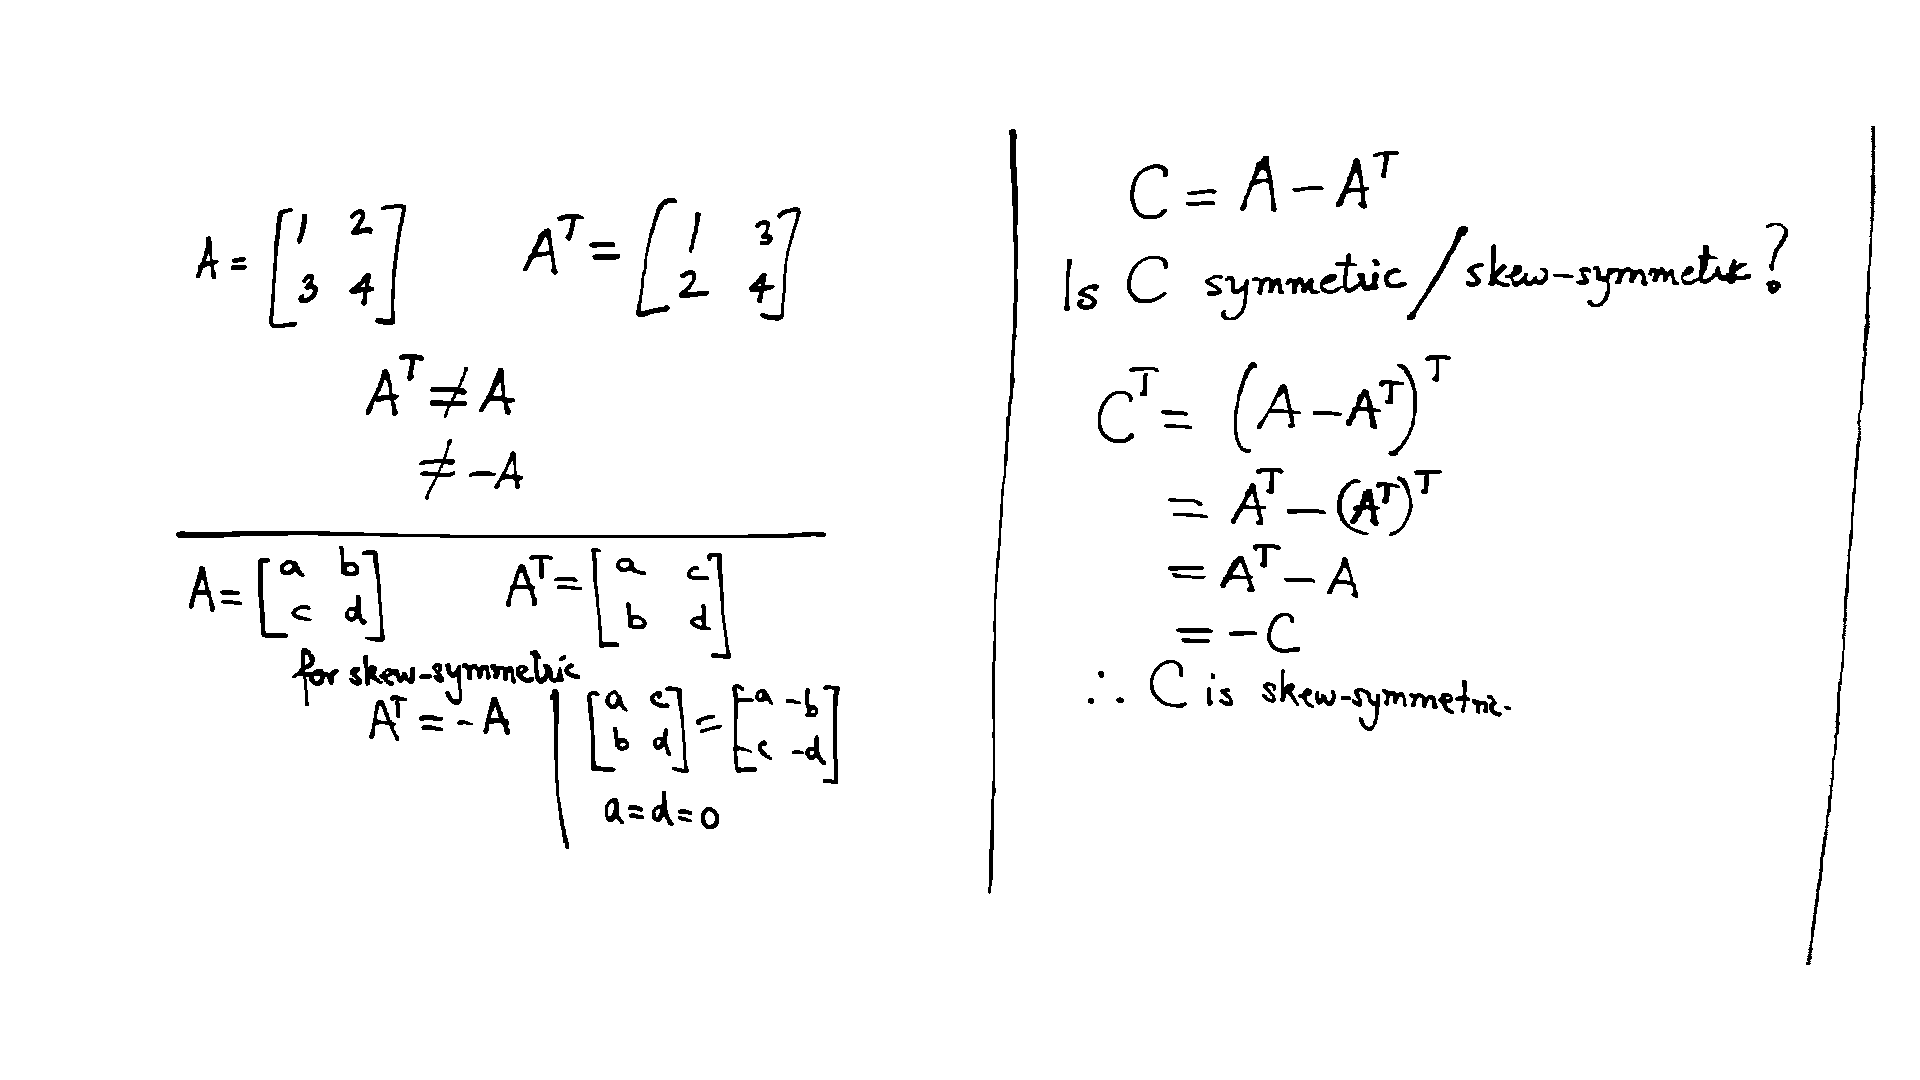 A = [1 2 3 4] Aᵀ = [1 3 2 4]
Aᵀ ≠ A
≠ -A
A = [a b c d] Aᵀ = [a c b d]
for skew-symmetric
Aᵀ = -A
[a c b d] = [-a -b -c -d]
a = d = 0
C = A - Aᵀ
Is C symmetric / skew-symmetric?
Cᵀ = (A - Aᵀ)ᵀ
= Aᵀ - (Aᵀ)ᵀ
= Aᵀ - A
= -C
∴ C is skew-symmetric.